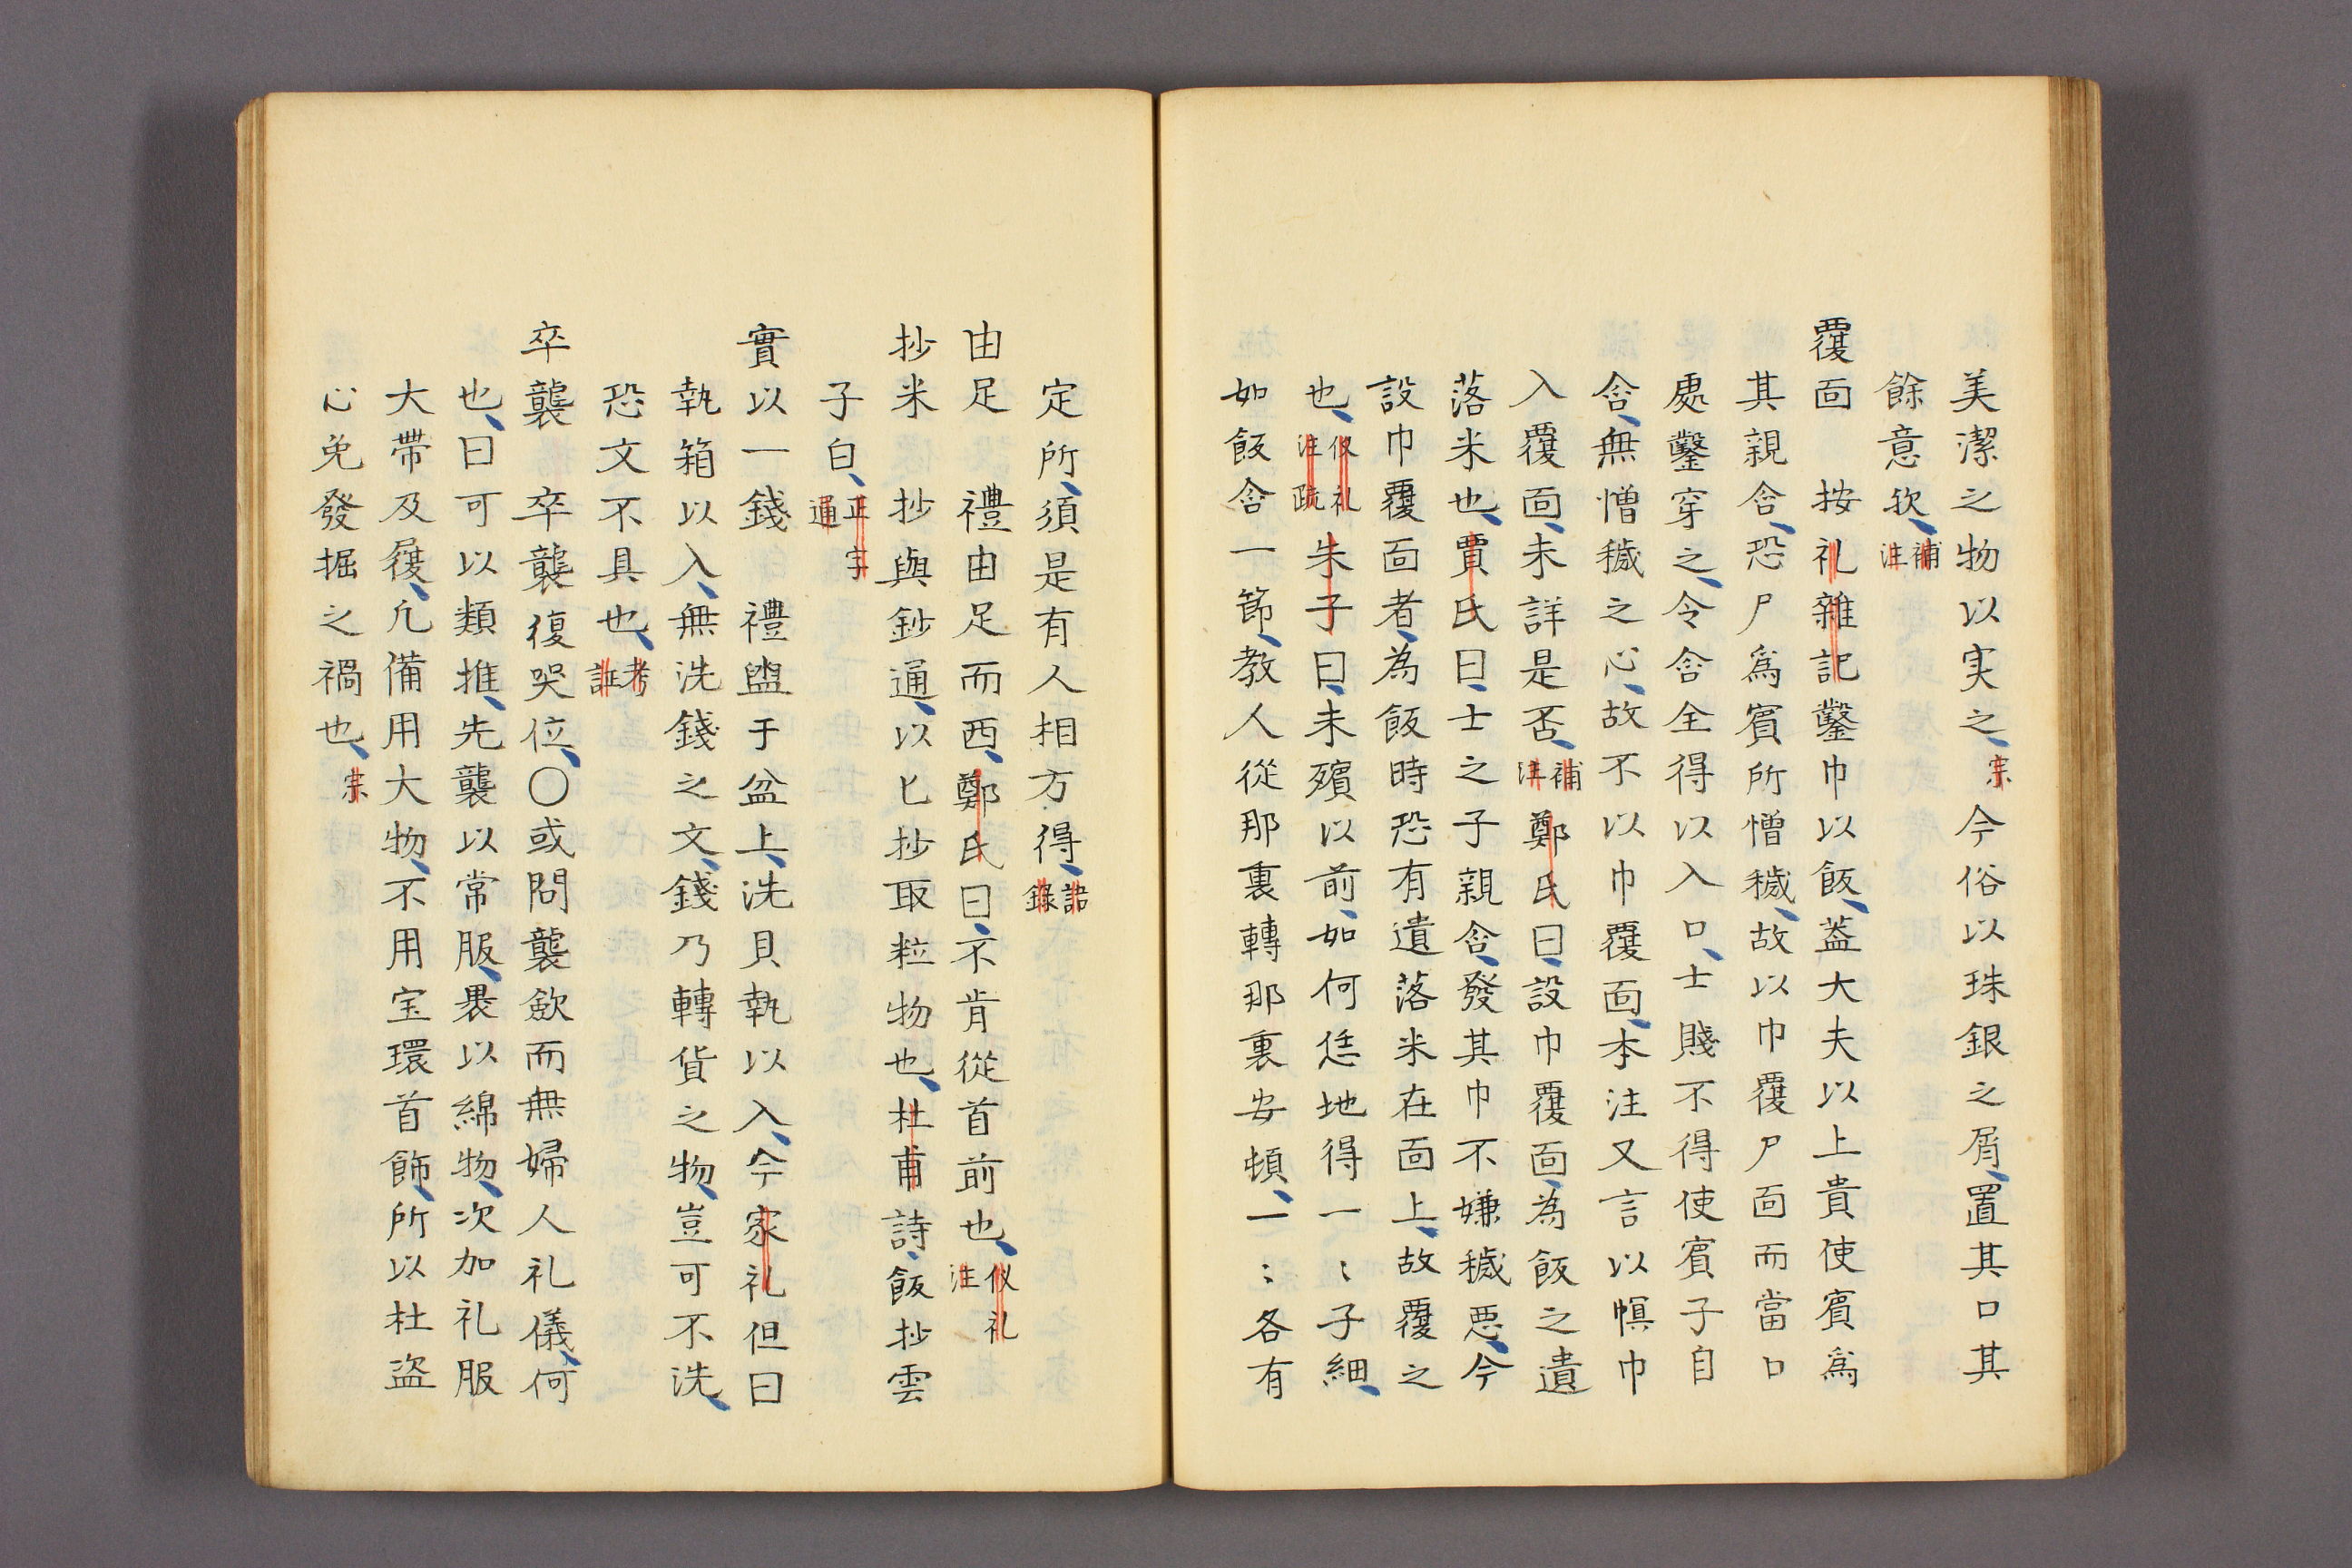 美潔之物以实之宗今俗以珠銀之屑置其口其
餘意欤補注
覆面　按礼雜記鑿巾以飯蓋大夫以上貴使賓爲
其親含恐尸爲賓所憎穢故以巾覆尸面而當口
處鑿穿之令含全得以入口士賤不得使賓子自
含無憎穢之心故不以巾覆面本注又言以幎巾
入覆面未詳是否補注鄭氏曰設巾覆面為飯之遺
落米也賈氏曰士之子親含發其巾不嫌穢悪今
設巾覆面者為飯時恐有遺落米在面上故覆之
也仪礼注疏朱子曰未殯以前如何恁地得一〻子細
如飯含一節教人從那裏轉那裏安頓一〻各有
定所須是有人相方得語錄
由足　禮由足而西鄭氏曰不肯從首前也仪礼注
抄米　抄與鈔通以匕抄取粒物也杜甫詩飯抄雲
子白正字通
實以一錢　禮盥于盆上洗貝執以入今家礼但曰
執箱以入無洗錢之文錢乃轉貨之物豈可不洗
恐文不具也考証
卒襲　卒襲復哭位〇或問襲斂而無婦人礼儀何
也曰可以類推先襲以常服裹以綿物次加礼服
大帶及履凢備用大物不用宝環首飾所以杜盗
心免發掘之禍也宗